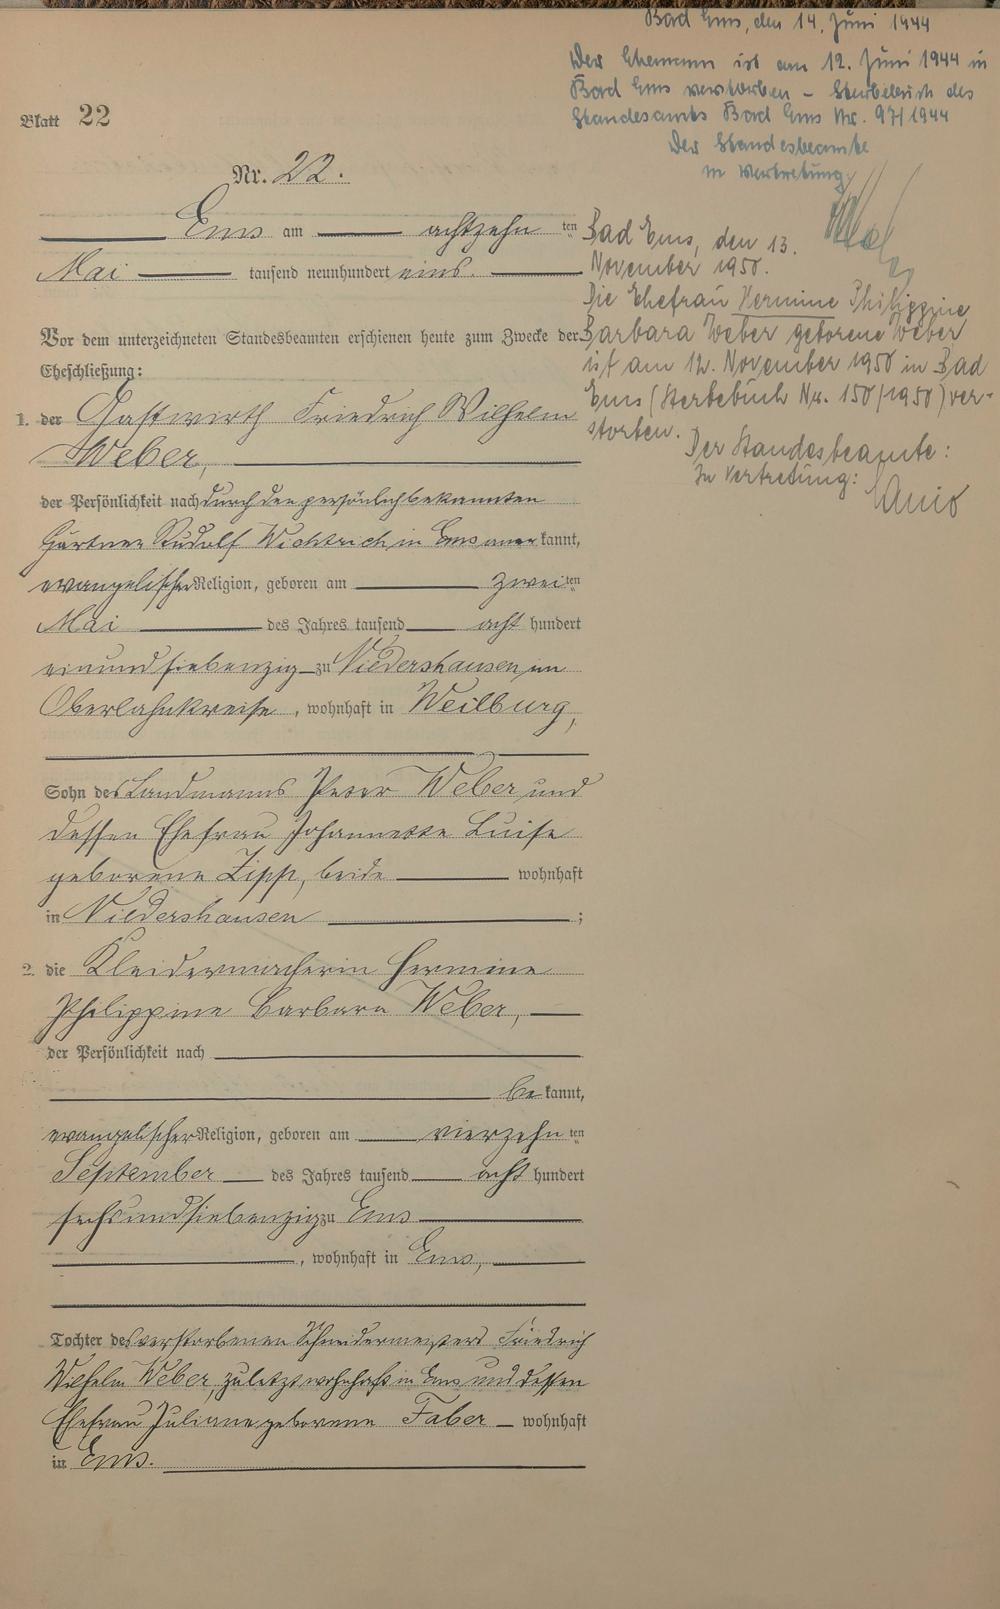 Bad Ems, den 14. Juni 1944
Der Ehemann ist am 12. Juni 1944 in
Bad Ems verstorben – Sterbebuch des
Standesamts Bad Ems Nr. 97/1944
Der Standesbeamte
in Vertretung:
Blatt 22
Nr. 22.
Ems am achtzehnten
Mai tausend neunhundert eins.
Bad Ems, den 13.
November 1950.
Die Ehefrau Hermine Philippine
Barbara Weber geborene Weber
ist am 12. November 1950 in Bad
Ems (Sterbebuch Nr. 150/1950) ver-
storben.
Der Standesbeamte:
In Vertretung:
Vor dem unterzeichneten Standesbeamten erschienen heute zum Zwecke der
Eheschließung:
1. der Gastwirth Friedrich Wilhelm
Weber,
der Persönlichkeit nach durch den persönlich bekannten
Gärtner Rudolf Wichtrich in Ems anerkannt,
evangelischer Religion, geboren am zweiten
Mai des Jahres tausend acht hundert
einundsiebenzig zu Niedershausen im
Oberlahnkreise, wohnhaft in Weilburg,
Sohn des Landmanns Peter Weber und
dessen Ehefrau Johannette Luise
geborene Zipp, beide wohnhaft
in Niedershausen ;
2. die Kleidermacherin Hermine
Philippine Barbara Weber,
der Persönlichkeit nach
bekannt,
evangelischer Religion, geboren am vierzehnten
September des Jahres tausend acht hundert
sechsundsiebenzig zu Ems
, wohnhaft in Ems,
Tochter des verstorbenen Schneidermeisters Friedrich
Wilhelm Weber, zuletzt wohnhaft in Ems und dessen
Ehefrau Juliane geborene Faber wohnhaft
in Ems.